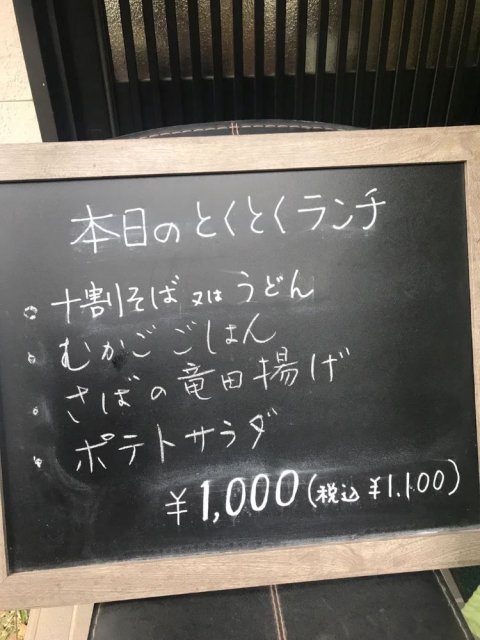 本日のとくとくランチ
十割そば 又は うどん
むかごごはん
さばの竜田揚げ
ポテトサラダ
¥1,000(税込 ¥1.100)